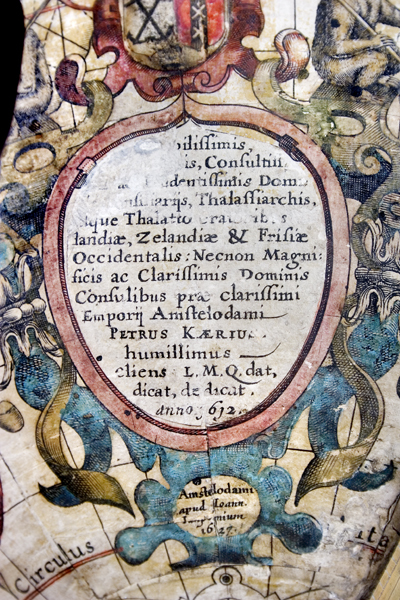 bilissimis,
is, Consultiss
udentissimis Domi
arijs, Thalassiarchis,
sque Thalatto cratoribus
landiæ, Zelandiæ & Frisiæ
Occidentalis: Necnon Magni-
ficis ac Clarissimis Dominis
Consulibus præ clarissimi
Emporij Amstelodami
PETRUS KÆRIUS
humillimus
cliens L. M. Q. dat,
dicat, dedicat.
Anno 1612
Amstelodami
apud Joann.
Circulus